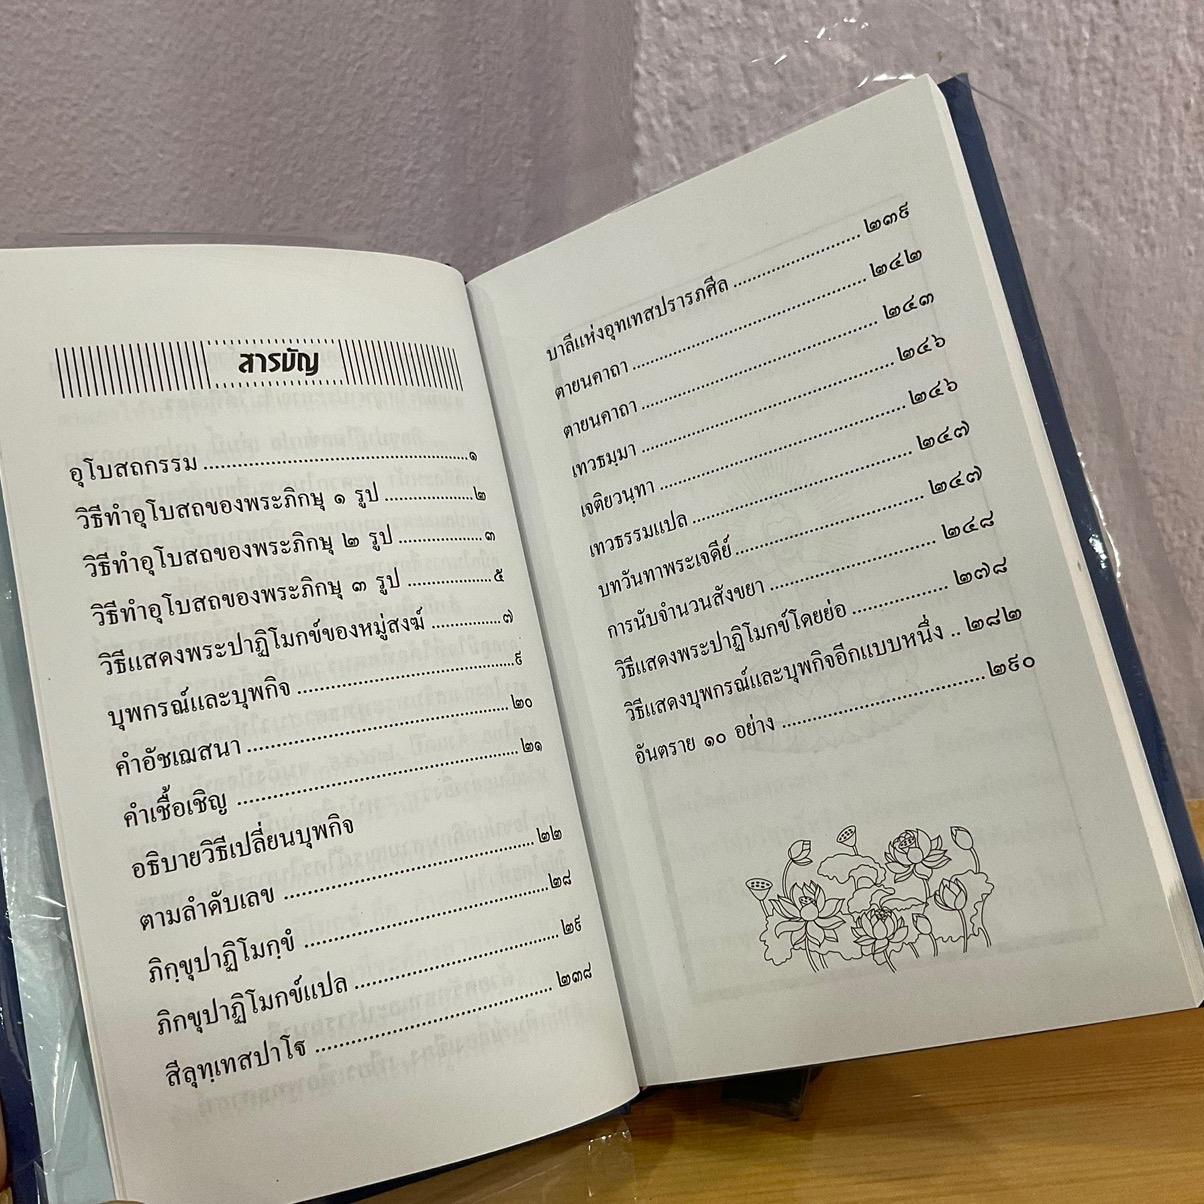 สารบัญ
อุโบสถกรรม ๑
วิธีทำอุโบสถของพระภิกษุ ๑ รูป ๒
วิธีทำอุโบสถของพระภิกษุ ๒ รูป ๓
วิธีทำอุโบสถของพระภิกษุ ๓ รูป ๕
วิธีแสดงพระปาฏิโมกข์ของหมู่สงฆ์ ๗
บุพกรณ์และบุพกิจ ๙
คำอัชเฌสนา ๒๐
คำเชื้อเชิญ ๒๑
อธิบายวิธีเปลี่ยนบุพกิจ
ตามลำดับเลข ๒๒
ภิกฺขุปาฏิโมกฺขํ ๒๘
ภิกขุปาฏิโมกข์แปล ๒๙
สีลุทฺเทสปาโฐ ๒๓๘
บาลีแห่งอุทเทสปรารภศีล ๒๓๙
ตายนคาถา ๒๔๒
ตายนคาถา ๒๔๓
เทวธมฺมา ๒๔๖
เจติยวนฺทา ๒๔๖
เทวธรรมแปล ๒๔๗
บทวันทาพระเจดีย์ ๒๔๗
การนับจำนวนสังขยา ๒๔๘
วิธีแสดงพระปาฏิโมกข์โดยย่อ ๒๗๘
วิธีแสดงบุพกรณ์และบุพกิจอีกแบบหนึ่ง .. ๒๘๒
อันตราย ๑๐ อย่าง ๒๙๐